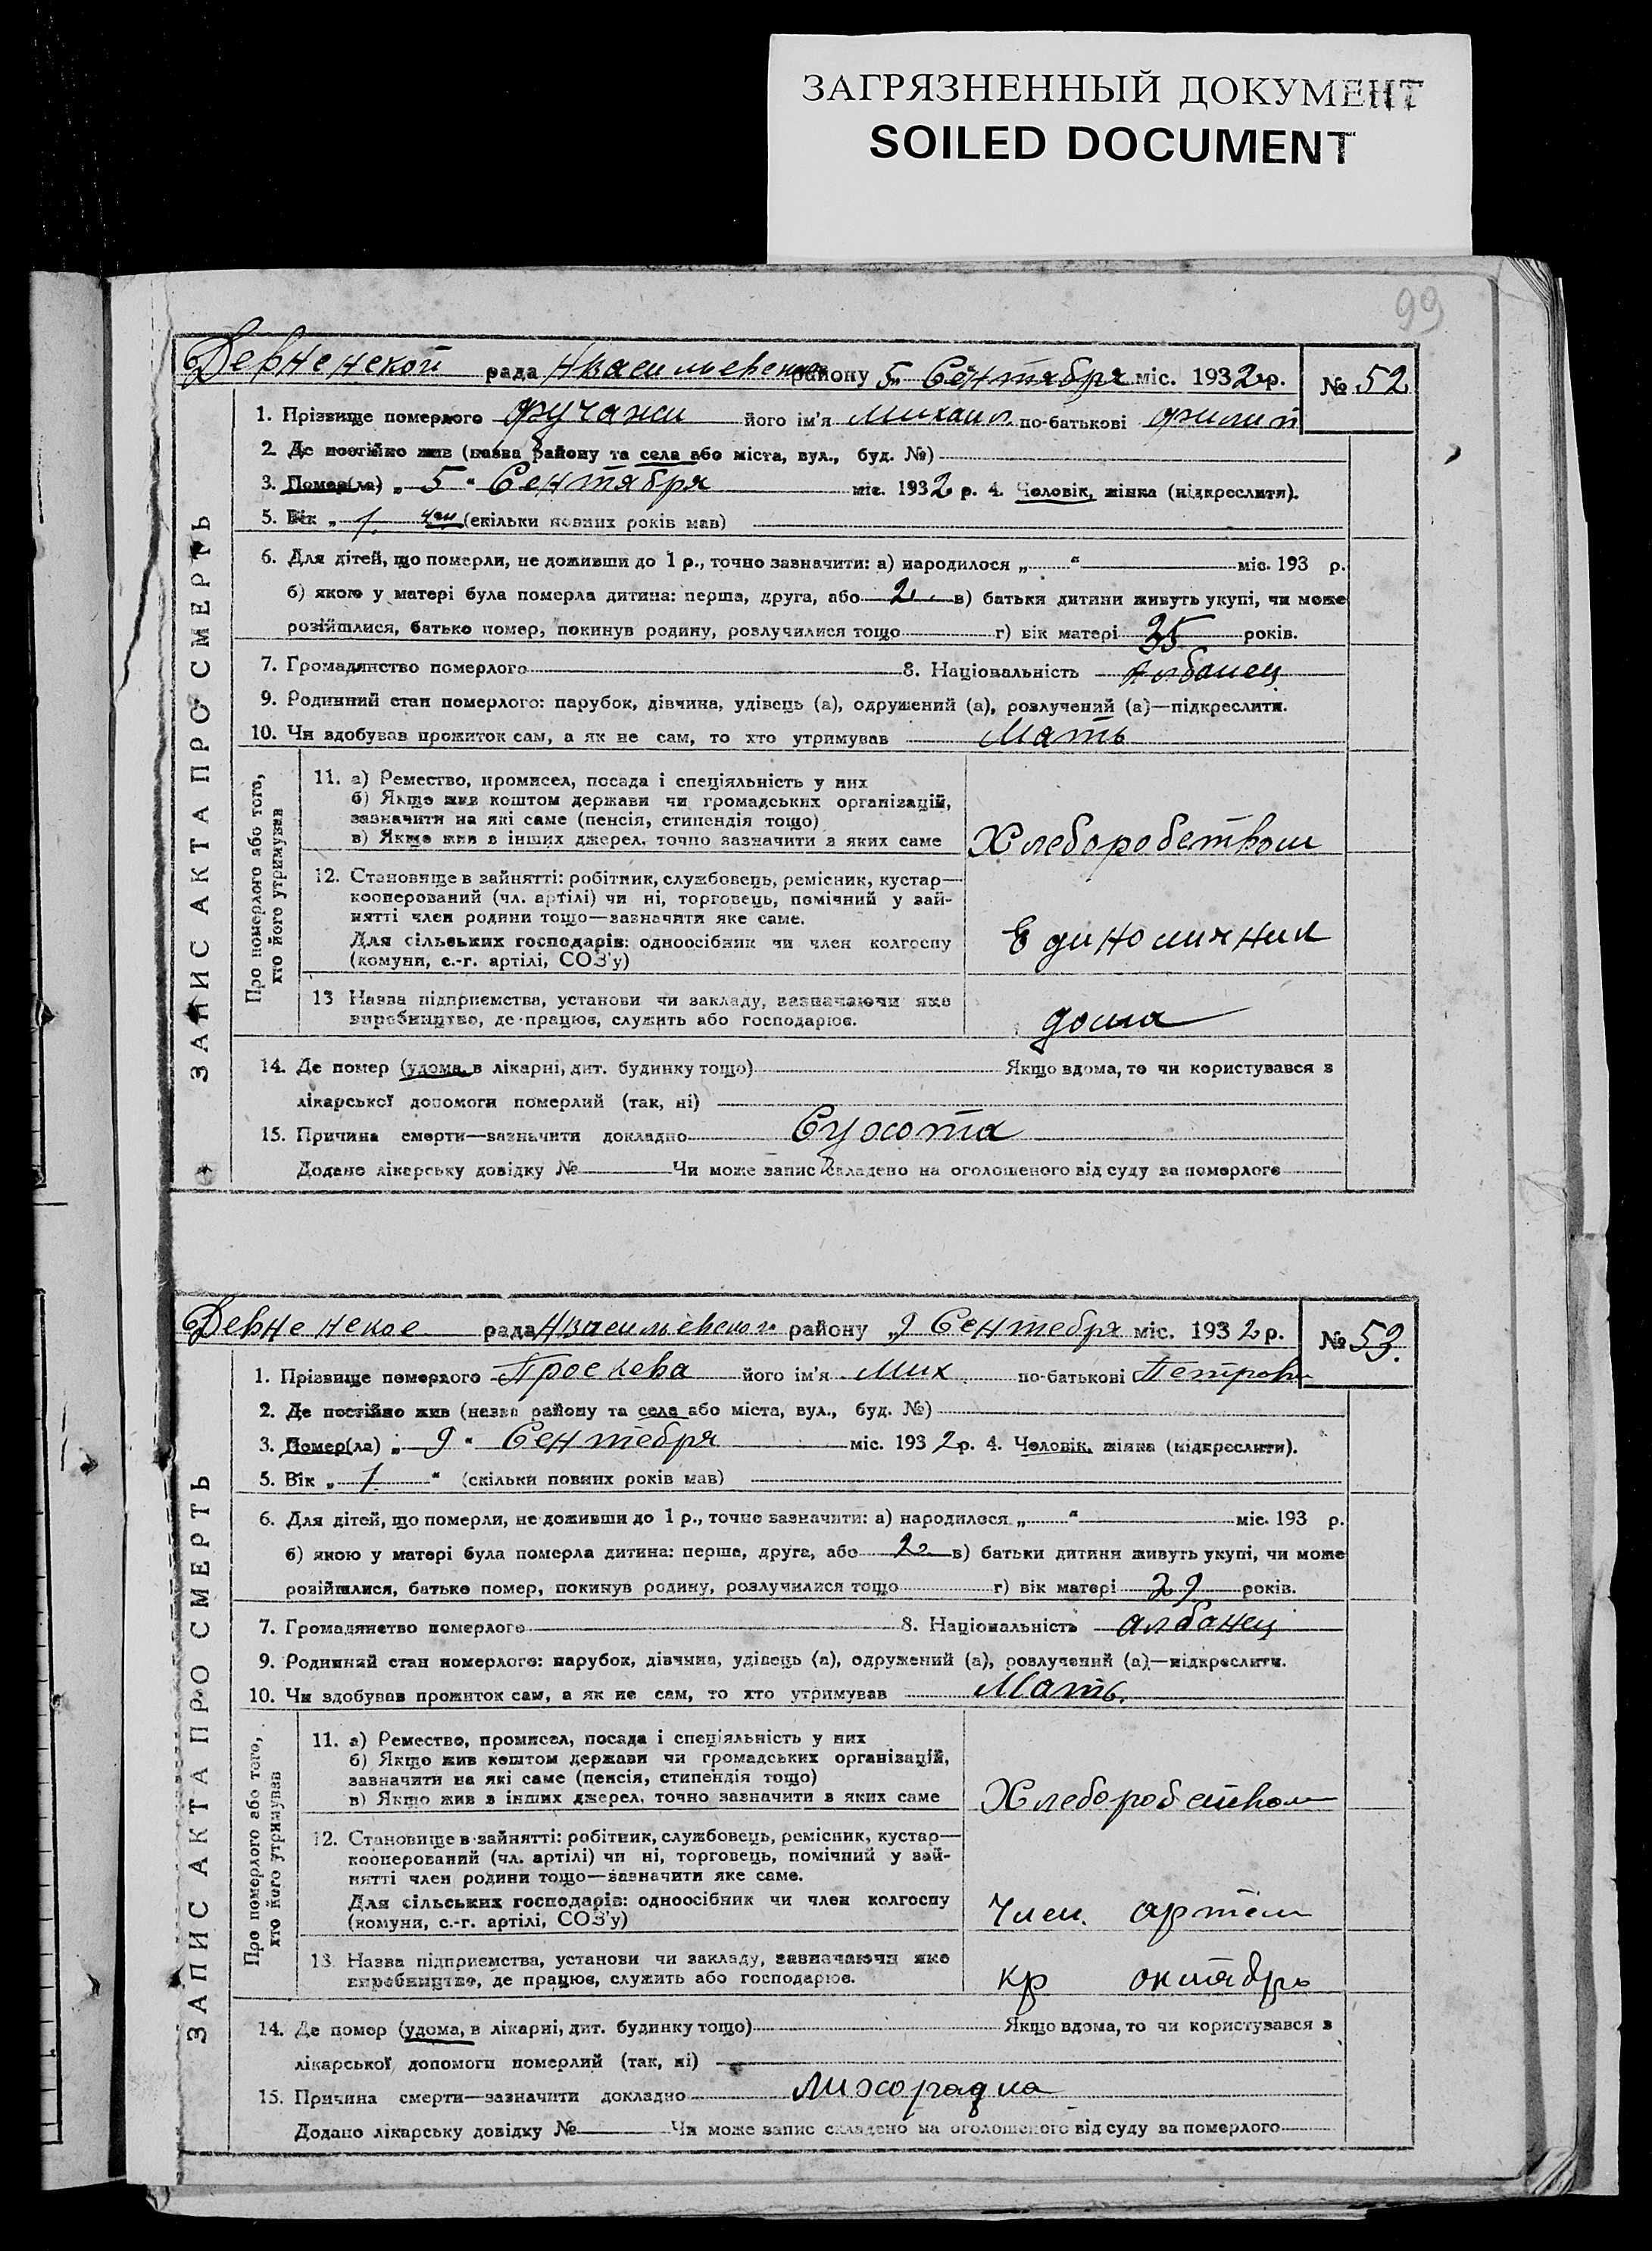 ЗАГРЯЗНЕННЫЙ ДОКУМЕНТ
SOILED DOCUMENT
99
рада района 5 Сентября міс. 1932 р. № 52
ЗАПИС АКТА ПРО СМЕРТЬ
1. Прізвище померлого Фучажи його ім'я Михаил по-батькові Филип
2. Де постійно жив (назва району та села або міста, вул., буд. №)
3. Помер(ла) „ 5 “ Сентября міс. 1932 р. 4. Чоловік, жінка (підкреслити).
5. Вік „ 1 (скільки повних років мав)
6. Для дітей, що померли, не доживши до 1 р., точно зазначити: а) народилося „ “ міс. 193 р.
б) якою у матері була померла дитина: перша, друга, або 2 в) батьки дитини живуть укупі, чи може
розійшлися, батько помер, покинув родину, розлучилися тощо г) вік матері 35 років.
7. Громадянство померлого 8. Національність Албанец
9. Родинний стан померлого: парубок, дівчина, удівець (а), одружений (а), розлучений (а)—підкреслити.
10. Чи здобував прожиток сам, а як не сам, то хто утримував Мать
Про померлого або того,
хто його утримував
11. а) Ремество, промисел, посада і спеціяльність у них
б) Якщо жив коштом держави чи громадських організацій,
зазначити на які саме (пенсія, стипендія тощо)
в) Якщо жив з інших джерел, точно зазначити з яких саме
Хлеборобством
12. Становище в зайнятті: робітник, службовець, ремісник, кустар—
кооперований (чл. артілі) чи ні, торговець, помічний у зай-
нятті член родини тощо—зазначити яке саме.
Для сільських господарів: одноосібник чи член колгоспу
(комуни, с.-г. артілі, СОЗ'у)
Единоличник
13 Назва підприємства, установи чи закладу, зазначаючи яке
виробництво, де працює, служить або господарює.
дома
14. Де помер (удома, в лікарні, дит. будинку тощо) Якщо вдома, то чи користувався з
лікарської допомоги померлий (так, ні)
15. Причина смерти—зазначити докладно Сухота
Додано лікарську довідку № Чи може запис складено на оголошеного від суду за померлого
рада району „9 Сентебря міс. 1932 р. № 53.
ЗАПИС АКТА ПРО СМЕРТЬ
1. Прізвище померлого його ім'я Мих по-батькові Петрови
2. Де постійно жив (назва району та села або міста, вул., буд. №)
3. Помер(ла) „ 9 “ Сентебря міс. 1932 р. 4. Чоловік, жінка (підкреслити).
5. Вік „ 1 “ (скільки повних років мав)
6. Для дітей, що померли, не доживши до 1 р., точно зазначити: а) народилося „ “ міс. 193 р.
б) якою у матері була померла дитина: перша, друга, або 2 в) батьки дитини живуть укупі, чи може
розійшлися, батько помер, покинув родину, розлучилися тощо г) вік матері 29 років.
7. Громадянство померлого 8. Національність албанец
9. Родинний стан померлого: парубок, дівчина, удівець (а), одружений (а), розлучений (а)—підкреслити.
10. Чи здобував прожиток сам, а як не сам, то хто утримував Мать.
Про померлого або того,
хто його утримував
11. а) Ремество, промисел, посада і спеціяльність у них
б) Якщо жив коштом держави чи громадських організацій,
зазначити на які саме (пенсія, стипендія тощо)
в) Якщо жив з інших джерел, точно зазначити з яких саме
Хлеборобством
12. Становище в зайнятті: робітник, службовець, ремісник, кустар—
кооперований (чл. артілі) чи ні, торговець, помічний у зай-
нятті член родини тощо—зазначити яке саме.
Для сільських господарів: одноосібник чи член колгоспу
(комуни, с.-г. артілі, СОЗ'у)
Член артели
13. Назва підприємства, установи чи закладу, зазначаючи яке
виробництво, де працює, служить або господарює.
кр октябрь
14. Де помер (удома, в лікарні, дит. будинку тощо) Якщо вдома, то чи користувався з
лікарської допомоги померлий (так, ні)
15. Причина смерти—зазначити докладно лихорадка
Додано лікарську довідку № Чи може запис складено на оголошеного від суду за померлого